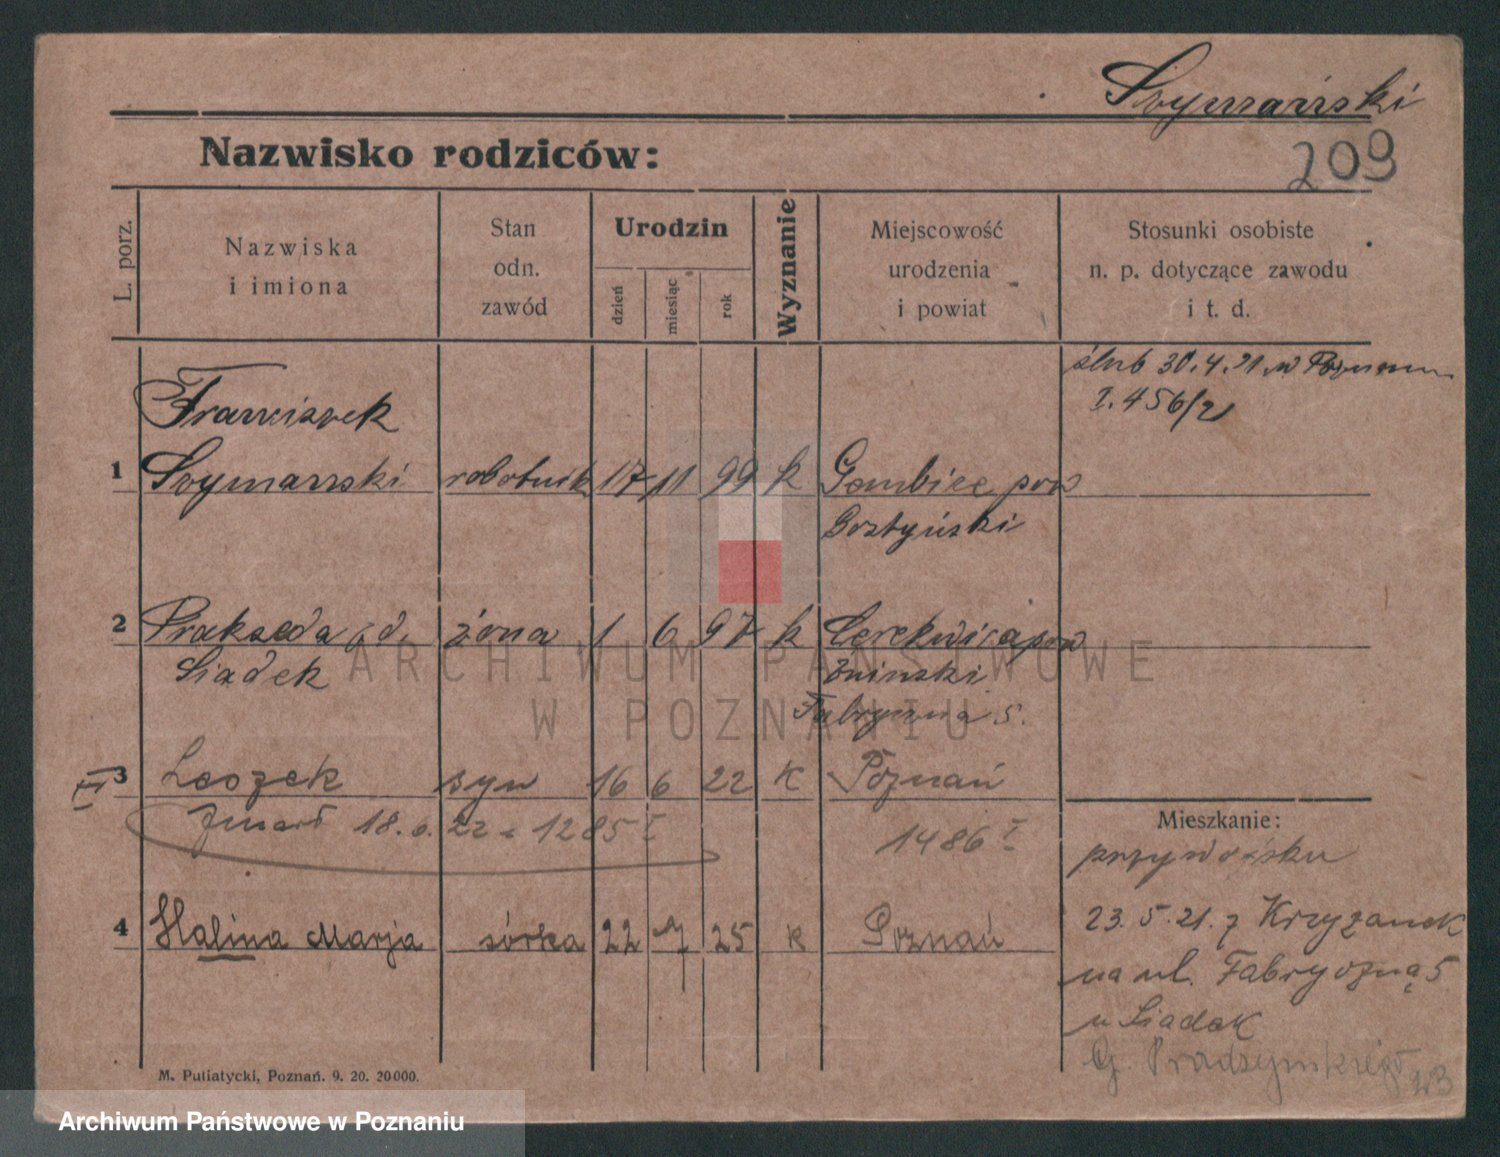 Szymański
209
Nazwisko rodziców:
L. porz.
Nazwiska
i imiona
Stan
odn.
zawód
Urodzin
dzień
miesiąc
rok
Wyznanie
Miejscowość
urodzenia
i powiat
Stosunki osobiste
n. p. dotyczące zawodu
i t. d.
ślub 30.4.21. w Poznaniu
I. 456/21
Franciszek
1 Szymański robotnik 17 11 99 k Gembice pow
Gostyński
2 Prakseda żona 1 6 97 k Cerekwica pow
Siadek Żniński
Fabryczna 5.
3 Leszek syn 16 6 22 K Poznań
Zmarł 18.6.22 1285 I 1486 I
4 Halina Marja córka 22 7 25 k Poznań
Mieszkanie:
przy wojsku
23.5.21. z Krzyżanek
na ul. Fabryczną 5
u Siadek
G. Prądzyńskiego 23
M. Putiatycki, Poznań. 9. 20. 20000.
ARCHIWUM PAŃSTWOWE
W POZNANIU
Archiwum Państwowe w Poznaniu